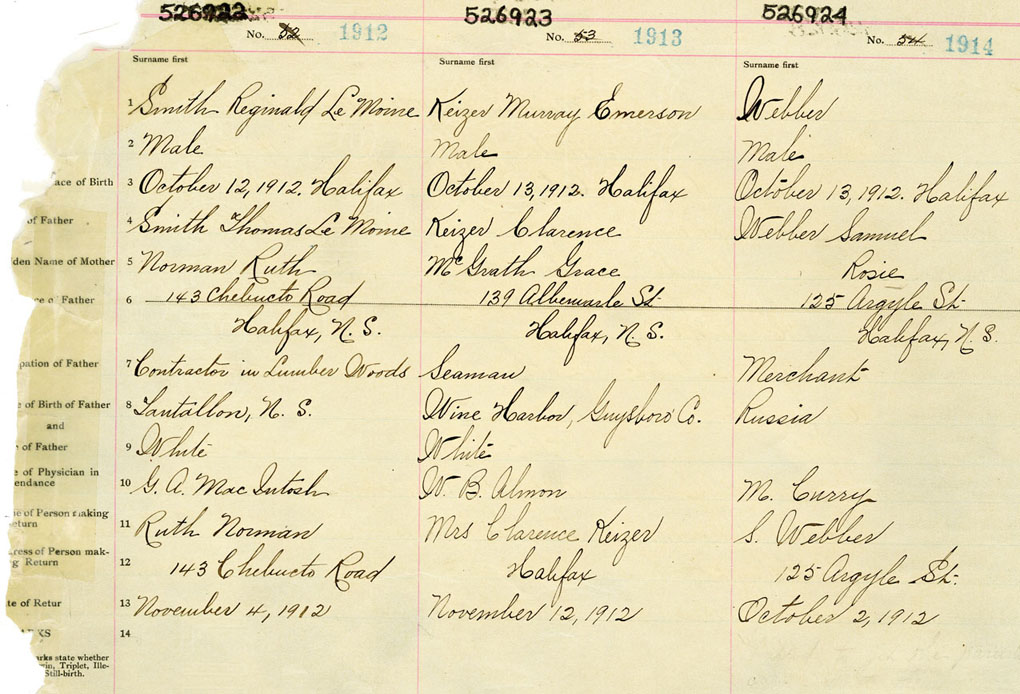 526922 526923 526924
No. 52 1912 No. 53 1913 No. 54 1914
Surname first Surname first Surname first
1 Smith Reginald Le Moine Keizer Murray Emerson Webber
2 Male Male Male
ace of Birth 3 October 12, 1912. Halifax October 13, 1912. Halifax October 13, 1912. Halifax
of Father 4 Smith Thomas Le Moine Keizer Clarence Webber Samuel
den Name of Mother 5 Norman Ruth McGrath Grace Rosie
ce of Father 6 143 Chebucto Road 139 Albemarle St. 125 Argyle St.
Halifax, N. S. Halifax, N. S. Halifax, N. S.
pation of Father 7 Contractor in Lumber Woods Seaman Merchant
e of Birth of Father 8 Tantallon, N. S. Wine Harbor, Guysboro Co. Russia
and
of Father 9 White White
e of Physician in
endance 10 G. A. MacIntosh W. B. Almon M. Curry
e of Person making
eturn 11 Ruth Norman Mrs Clarence Keizer S. Webber
ress of Person mak-
g Return 12 143 Chebucto Road Halifax 125 Argyle St.
te of Retur 13 November 4, 1912 November 12, 1912 October 2, 1912
RKS 14
arks state whether
in, Triplet, Ille-
Still-birth.